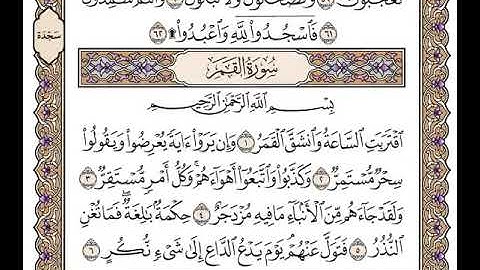 تَعْجَبُونَ ٥٩ وَتَضْحَكُونَ وَلَا تَبْكُونَ ٦٠ وَأَنتُمْ سَٰمِدُونَ
٦١ فَٱسْجُدُوا۟ لِلَّهِ وَٱعْبُدُوا۟ ۩ ٦٢
سَجْدَة
سُورَةُ القَمَرِ
بِسْمِ ٱللَّهِ ٱلرَّحْمَٰنِ ٱلرَّحِيمِ
ٱقْتَرَبَتِ ٱلسَّاعَةُ وَٱنشَقَّ ٱلْقَمَرُ ١ وَإِن يَرَوْا۟ ءَايَةً يُعْرِضُوا۟ وَيَقُولُوا۟
سِحْرٌ مُّسْتَمِرٌّ ٢ وَكَذَّبُوا۟ وَٱتَّبَعُوٓا۟ أَهْوَآءَهُمْ ۚ وَكُلُّ أَمْرٍ مُّسْتَقِرٌّ ٣
وَلَقَدْ جَآءَهُم مِّنَ ٱلْأَنۢبَآءِ مَا فِيهِ مُزْدَجَرٌ ٤ حِكْمَةٌۢ بَٰلِغَةٌ ۖ فَمَا تُغْنِ
ٱلنُّذُرُ ٥ فَتَوَلَّ عَنْهُمْ ۘ يَوْمَ يَدْعُ ٱلدَّاعِ إِلَىٰ شَىْءٍ نُّكُرٍ ٦